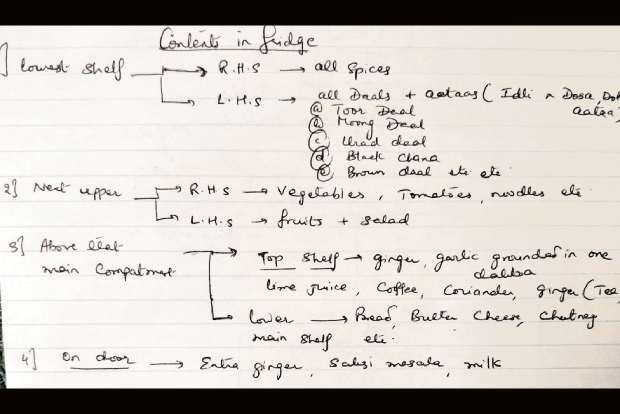 Contents in fridge
1] lowest shelf → R.H.S → all spices
→ L.H.S → all Daals + aataas ( Idli n Dosa,
aataa)
(a) Toor Daal
(b) Moong Daal
(c) Urad daal
(d) Black Chana
(e) Brown daal etc etc.
2] Next upper → R.H.S → Vegetables, Tomatoes, noodles etc.
→ L.H.S → fruits + salad
3] Above that → Top shelf → ginger, garlic grounded in one
main Compartment dabba
lime juice, Coffee, Coriander, ginger (Tea
→ lower → Bread, Butter Cheese, Chutney
main shelf etc.
4] On door → Extra ginger, sabzi masala, milk